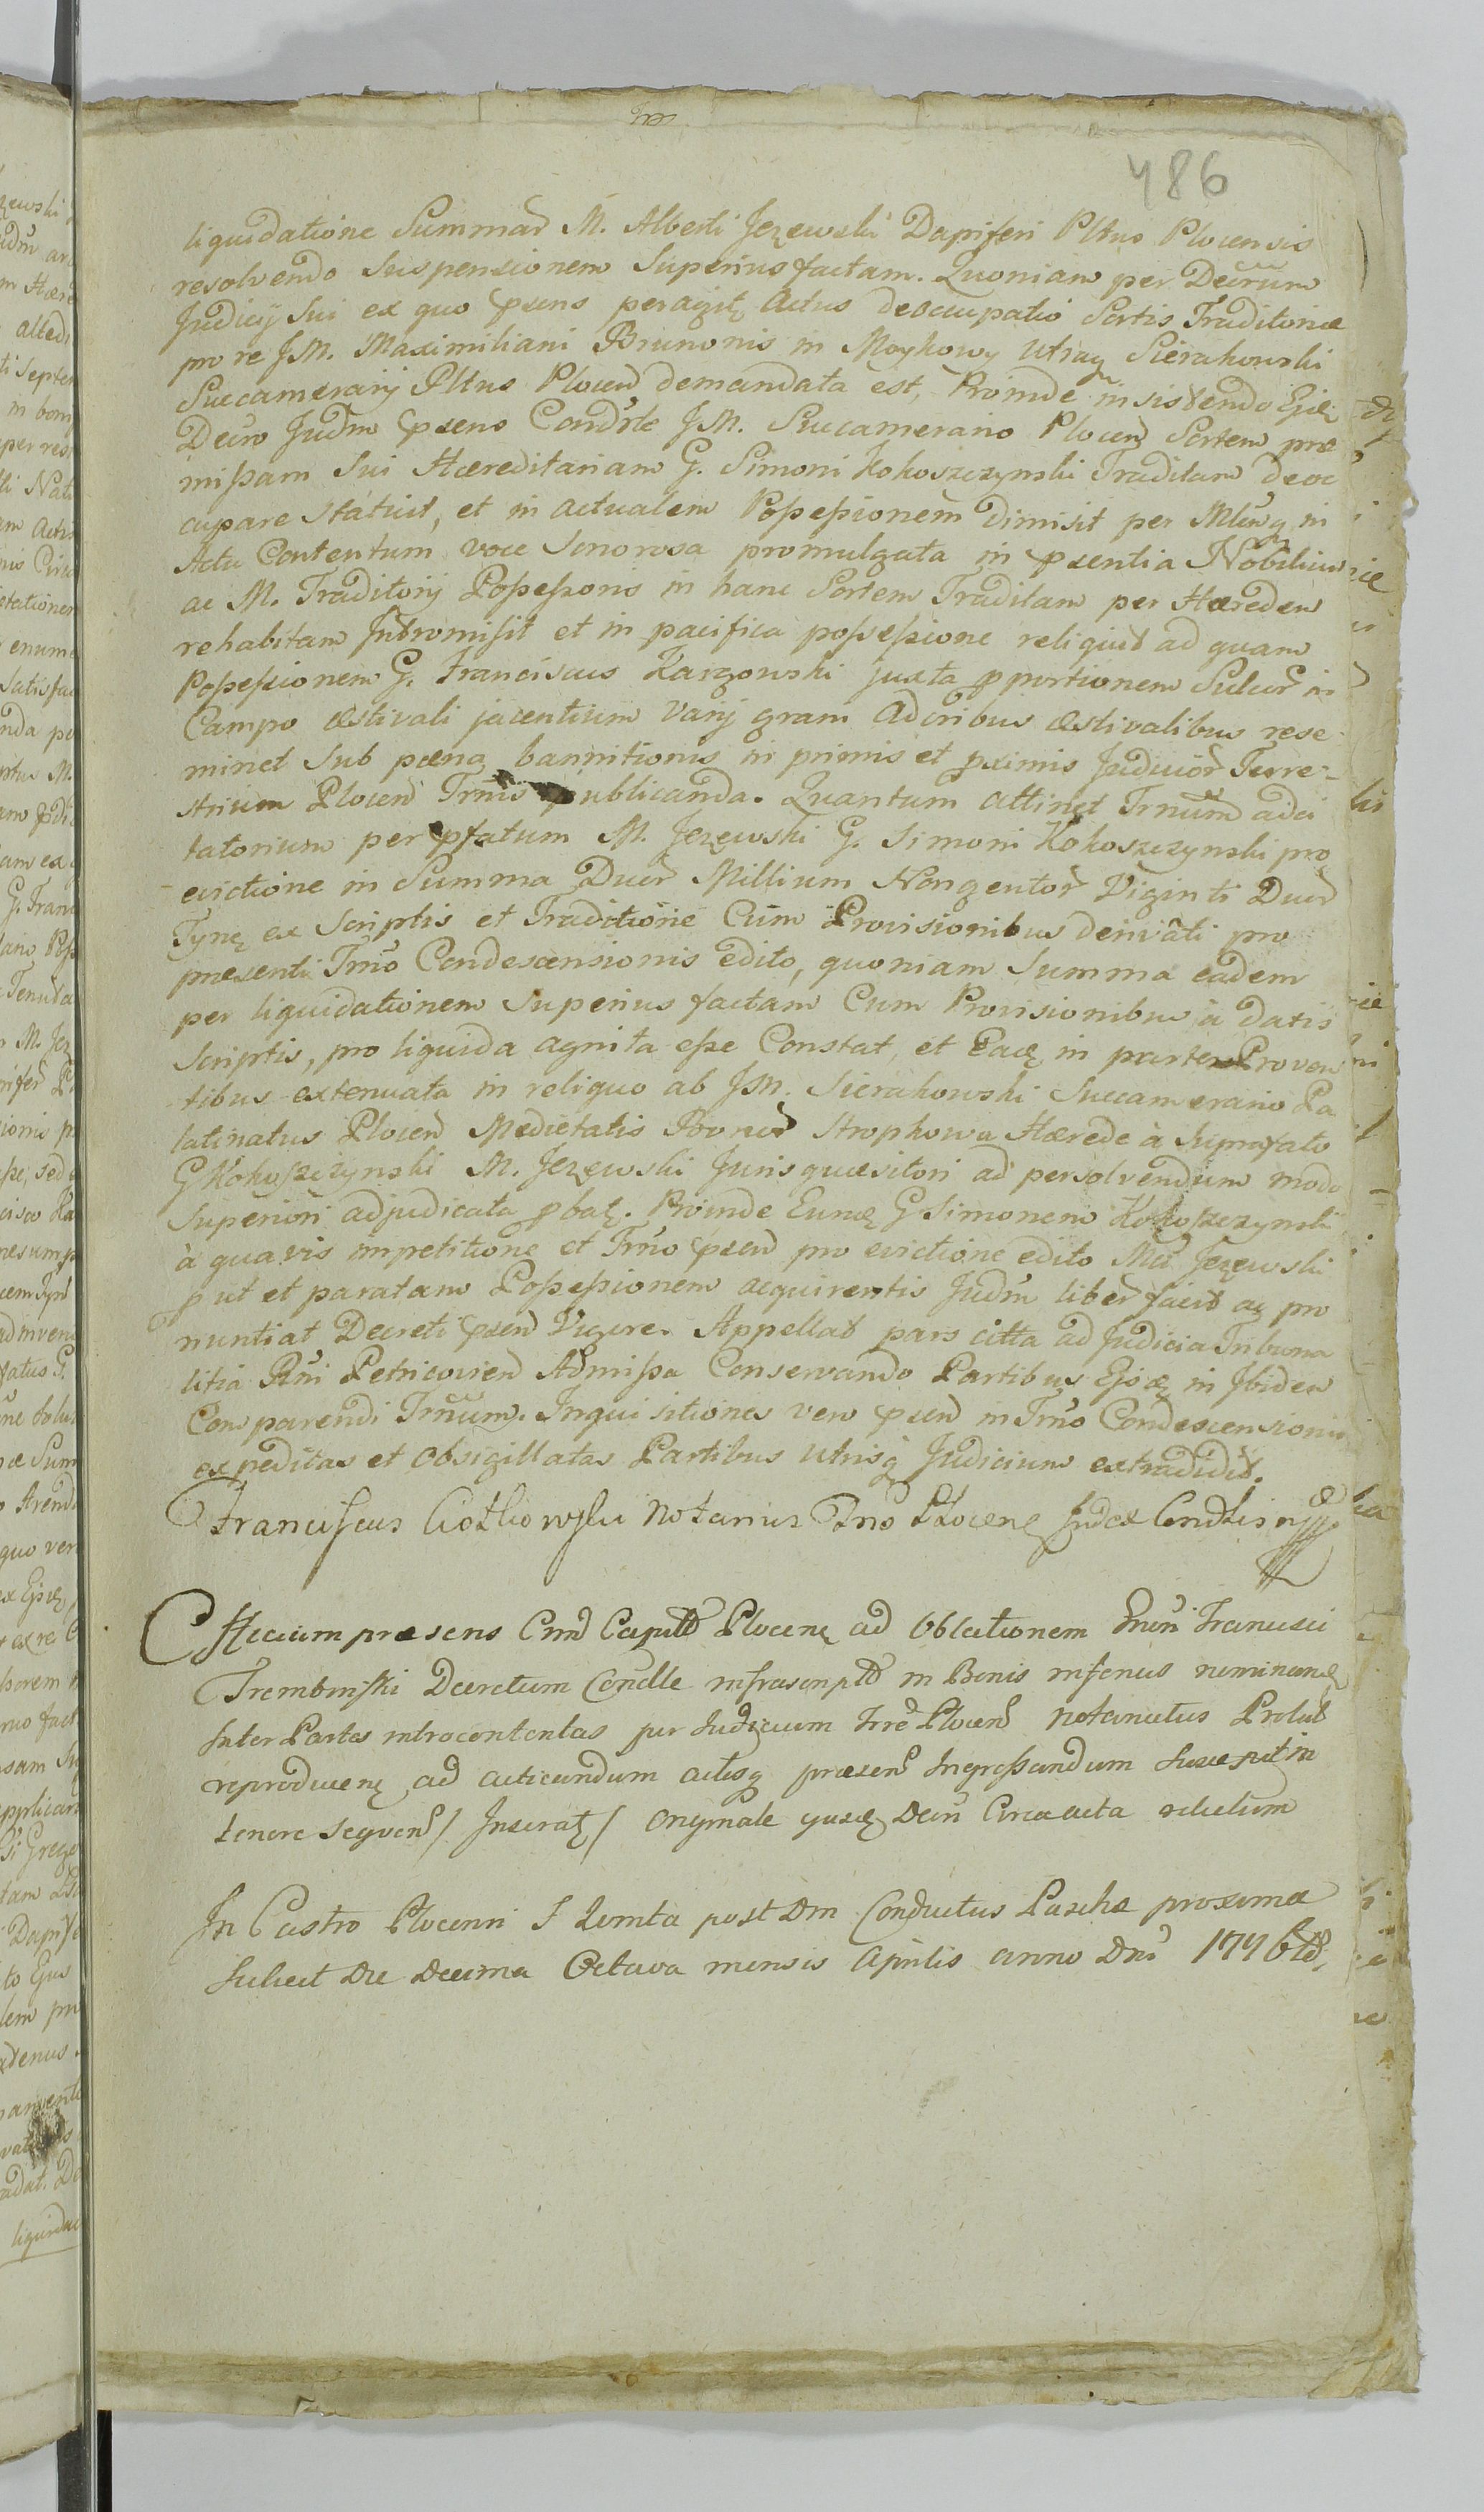 486
liquidatione Summar M. Alberti Jeżewski Dapiferi Pltus Plocensis
resolvendo Suspensionem Superius factam. Quoniam per Decrum
Judicij Sui ex quo pxens peragitę Actus deoccupatio Sortis Traditoriæ
pro re JM. Maximiliani Brunonis in Moykowy utraq Sierakowski
Succamerarij Pltus Plocen demandata est, Proinde insistendo Ejdę
Decro Judm pxens Condrle JM. Succamerario Plocen Sortem præ
missam Sui Hæreditariam G. Simoni Kokoszczynski Traditam deoc
cupare Statuit, et in actualem Possessionem dimisit per Mlem in
Actu Contentum voce Sonorosa promulgata in pxentia Nobilium
ac M. Traditorij Possessoris in hanc Sortem Traditam per Hæredem
rehabitam Intromisit et in pacifica possessione reliquit ad quam
Possessionem G. Franciscus Kargowski juxta pportionem Sulcor in
Campo æstivali jacentium varij gram adoribus æstivalibus rese
minet Sub pæna bannitionis in primis et pximis Judicior Terre-
strium Plocen Trnis publicanda. Quantum attinet Trnum adci
tatorium per pfatum M. Jeżewski G. Simoni Kokoszczynski pro
evictione in Summa Duor Millium Nongentor Viginti Duor
Tynę ex Scriptis et Traditione Cum Provisionibus derivati pro
præsenti Trno Condescensionis edito, quoniam Summa eadem
per liquidationem Superius factam Cum Provisionibus à datis
Scriptis, pro liquida agnita esse Constat, et Eadę in partem Proven
tibus extenuata in reliquo ab JM. Sierakowski Succamerario Pa
latinatus Plocen Medietatis Bonor Strophowa Hærede à Suprafato
G Kokoszczynski M. Jeżewski Juris quæsitori ad persolvendum modo
Superiori adjudicata pbatę. Proinde Eundę G Simonem Kokoszczynski
à quavis impetitione et Trno pxen pro evictione edito M. Jeżewski
put et paratam Possessionem acquirentis Judm liber facit aę pro
nuntiat Decreti pxen Vigore. Appellat pars citta ad Judicia Tribuna
litia Rni Petricovien Admissa Conservando Partibus Ejsdę in Ibidem
Comparendi Trnum. Inquisitiones vero pxen in Trno Condescensionis
expeditas et Obsigillatas Partibus utrisq Judicium extradidit.
Franciscus Ciotkowski Notarius Trno Plocenę Judex Condlis
Officium præsens Cnn Capitl Plocenę ad Oblationem Francisci
Trembinski Decretum Condlle infrascript in Bonis inferius nominanę
Inter Partes introcontentas per Judicium Trre Plocen notariatus Prolat
reproducenę ad acticandum actisq præsen Ingrossandum Suscepit in
tenore sequen / Inseratę / Originale ejusdę Decri Circa acta relictum
In Castro Plocensi F Quinta post Dm Conductus Paschæ proxima
Scilicet Die Decima Octava mensis Aprilis anno Dni 1776